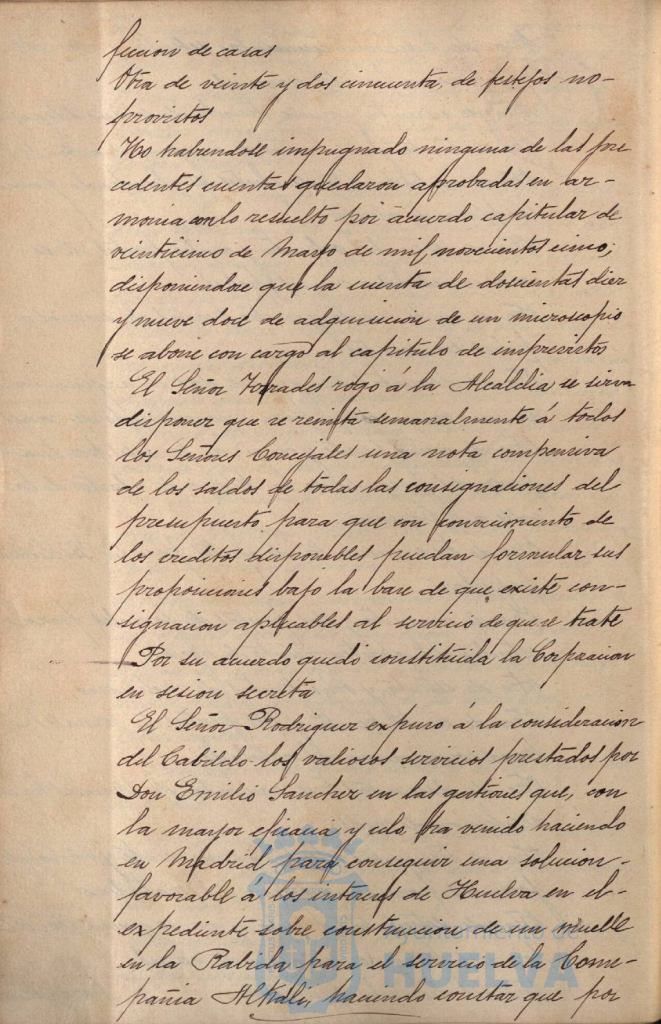 ficcion de casas
Otra de veinte y dos cincuenta, de festejos no-
provistos
No habiendose impugnado ninguna de las pre
cedentes cuentas quedaron aprobadas en ar-
monia con lo resuelto por acuerdo capitular de
veinticinco de Mayo de mil novecientos cinco;
disponiendose que la cuenta de doscientas diez
y nueve doce de adquisicion de un microscopio
se abone con cargo al capitulo de imprevistos
El Señor Terrades rogó á la Alcaldia se sirva
disponer que se remita semanalmente á todos
los Señores Concejales una nota compensiva
de los saldos de todas las consignaciones del
presupuesto para que con conocimiento de
los creditos disponibles puedan formular sus
proposiciones bajo la base de que existe con-
signacion aplicables al servicio de que se trate
Por su acuerdo quedó constituida la Corporacion
en sesion secreta
El Señor Rodriguez expuso á la consideracion
del Cabildo los valiosos servicios prestados por
Don Emilio Sanchez en las gestiones que, con
la mayor eficacia y celo, ha venido haciendo
en Madrid para conseguir una solucion-
favorable á los intereses de Huelva en el-
expediente sobre construccion de un muelle
en la Rabida para el servicio de la Com-
pañia Alkali, haciendo constar que por
Ayuntamiento de
HUELVA